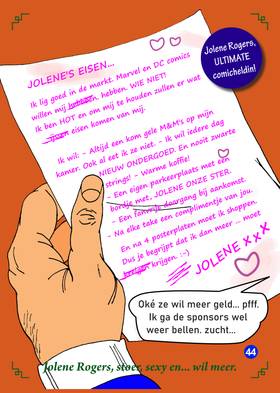 Jolene Rogers,
ULTIMATE
comicheldin!
JOLENE'S EISEN...
Ik lig goed in de markt. Marvel en DC comics
willen mij hebben. WIE NIET!
Ik ben HOT en om mij te houden zullen er wat
eisen komen van mij.
Ik wil: - Altijd een kom gele M&M's op mijn
kamer. Ook al eet ik ze niet. - Ik wil iedere dag
NIEUW ONDERGOED. En nooit zwarte
strings! - Warme koffie!
- Een eigen parkeerplaats met een
bordje met, JOLENE ONZE STER.
- Een fanvrije doorgang bij aankomst.
- Na elke take een complimentje van jou.
En na 4 posterplaten moet ik shoppen.
Dus je begrijpt dat ik dan meer – moet
krijgen. :-)
JOLENE xxx
Oké ze wil meer geld... pfff.
Ik ga de sponsors wel
weer bellen. zucht...
44
Jolene Rogers, stoer, sexy en... wil meer.